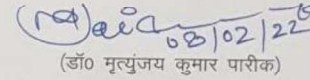 08/02/22
(डॉ० मृत्युंजय कुमार पारीक)